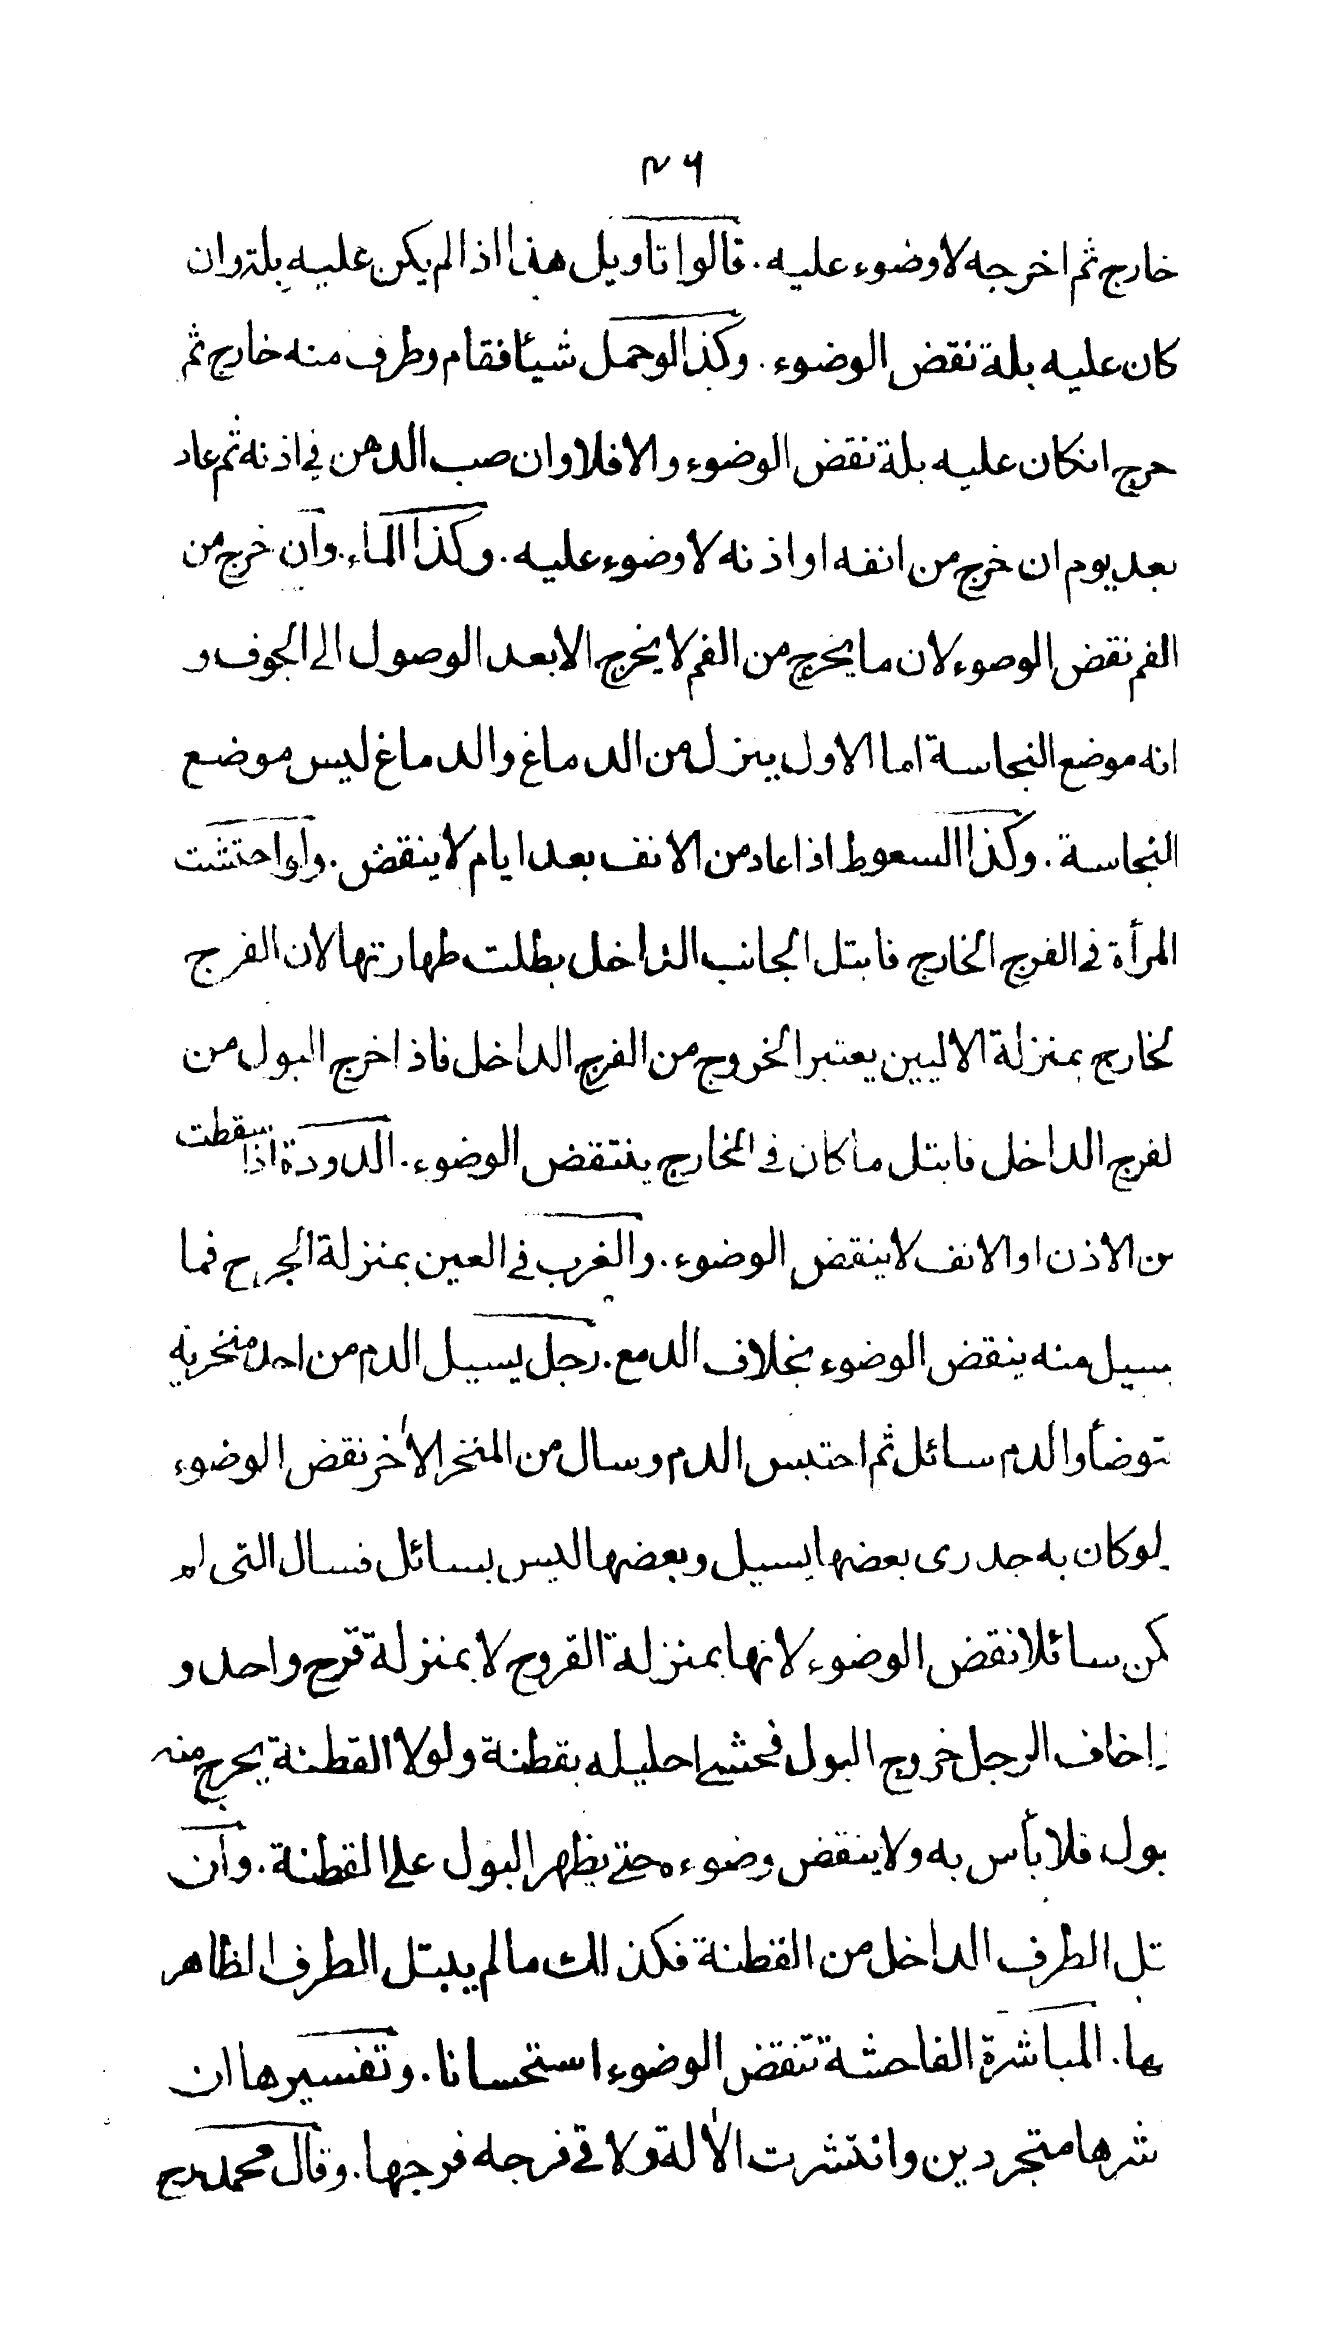 ٤٦
خارج ثم اخرجه لا وضوء عليه . قالوا تاويل هذا اذا لم يكن عليه بلة وان
كان عليه بلة نقض الوضوء . وكذا لو حمل شيئا فقام وطرف منه خارج ثم
خرج انكان عليه بلة نقض الوضوء والا فلا وان صب الدهن في اذنه ثم عاد
بعد يوم ان خرج من انفه او اذنه لا وضوء عليه . وكذا الماء . وان خرج من
الفم نقض الوضوء لان ما يخرج من الفم لا يخرج الا بعد الوصول الى الجوف و
انه موضع النجاسة اما الاول ينزل من الدماغ والدماغ ليس موضع
النجاسة . وكذا السعوط اذا عاد من الانف بعد ايام لا ينقض . ولو احتشت
المرأة في الفرج الخارج فابتل الجانب الداخل بطلت طهارتها لان الفرج
لخارج بمنزلة الاليين يعتبر الخروج من الفرج الداخل فاذا خرج البول من
لفرج الداخل فابتل ما كان في الخارج ينتقض الوضوء . الدودة اذا سقطت
من الاذن او الانف لا ينقض الوضوء . والغرب في العين بمنزلة الجرح فما
يسيل منه ينقض الوضوء بخلاف الدمع . رجل يسيل الدم من احد منخريه
توضأ والدم سائل ثم احتبس الدم وسال من المنخر الآخر نقض الوضوء
لو كان به جدرى بعضها يسيل وبعضها ليس بسائل فسال التى لم
كن سائلا نقض الوضوء لانها بمنزلة القروح لا بمنزلة قرح واحد و
ا خاف الرجل خروج البول فحشى احليله بقطنة ولولا القطنة يخرج منه
بول فلا بأس به ولا ينقض وضوءه حتى يظهر البول على القطنة . وان
تل الطرف الداخل من القطنة فكذلك ما لم يبتل الطرف الظاهر
ها . المباشرة الفاحشة تنقض الوضوء استحسانا . وتفسيرها ان
شرها متجردين وانتشرت الآلة ولاقى فرجه فرجها . وقال محمد رح